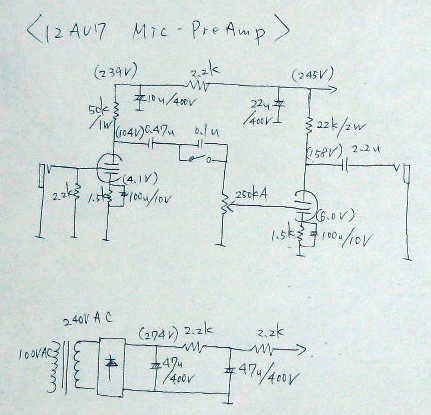 <12AU7 Mic-PreAmp>
(239V) 2.2k (245V)
10u/400V
50k/1W
22u/400V
22k/2W
(104V) 0.47u 0.1u
(158V) 2.2u
(4.1V)
2.2k 1.5k 100u/10V
250kA
(6.0V)
1.5k 100u/10V
240VAC
100VAC
(274V) 2.2k 2.2k
47u/400V
47u/400V